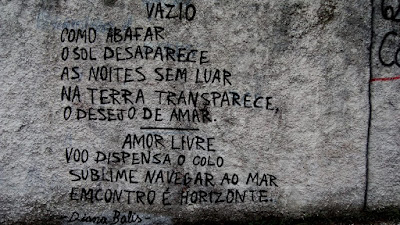 VAZIO
COMO ABAFAR
O SOL DESAPARECE
AS NOITES SEM LUAR
NA TERRA TRANSPARECE,
O DESEJO DE AMAR.
AMOR LIVRE
VOO DISPENSA O COLO
SUBLIME NAVEGAR AO MAR
EMCONTRO É HORIZONTE.
- Diana Balis -